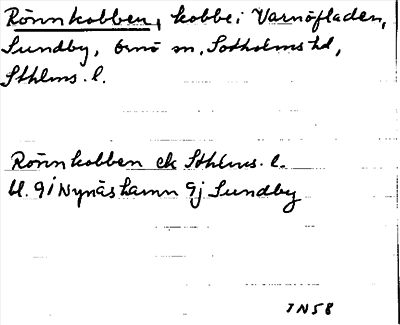 Rönnkobben, kobbe i Varnöfladen,
Sundby, Ornö sn, Sotholms hd,
Sthlms. l.
Rönnkobben ek Sthlms. l.
bl. 9i Nynäshamn 9j Sundby
IN58